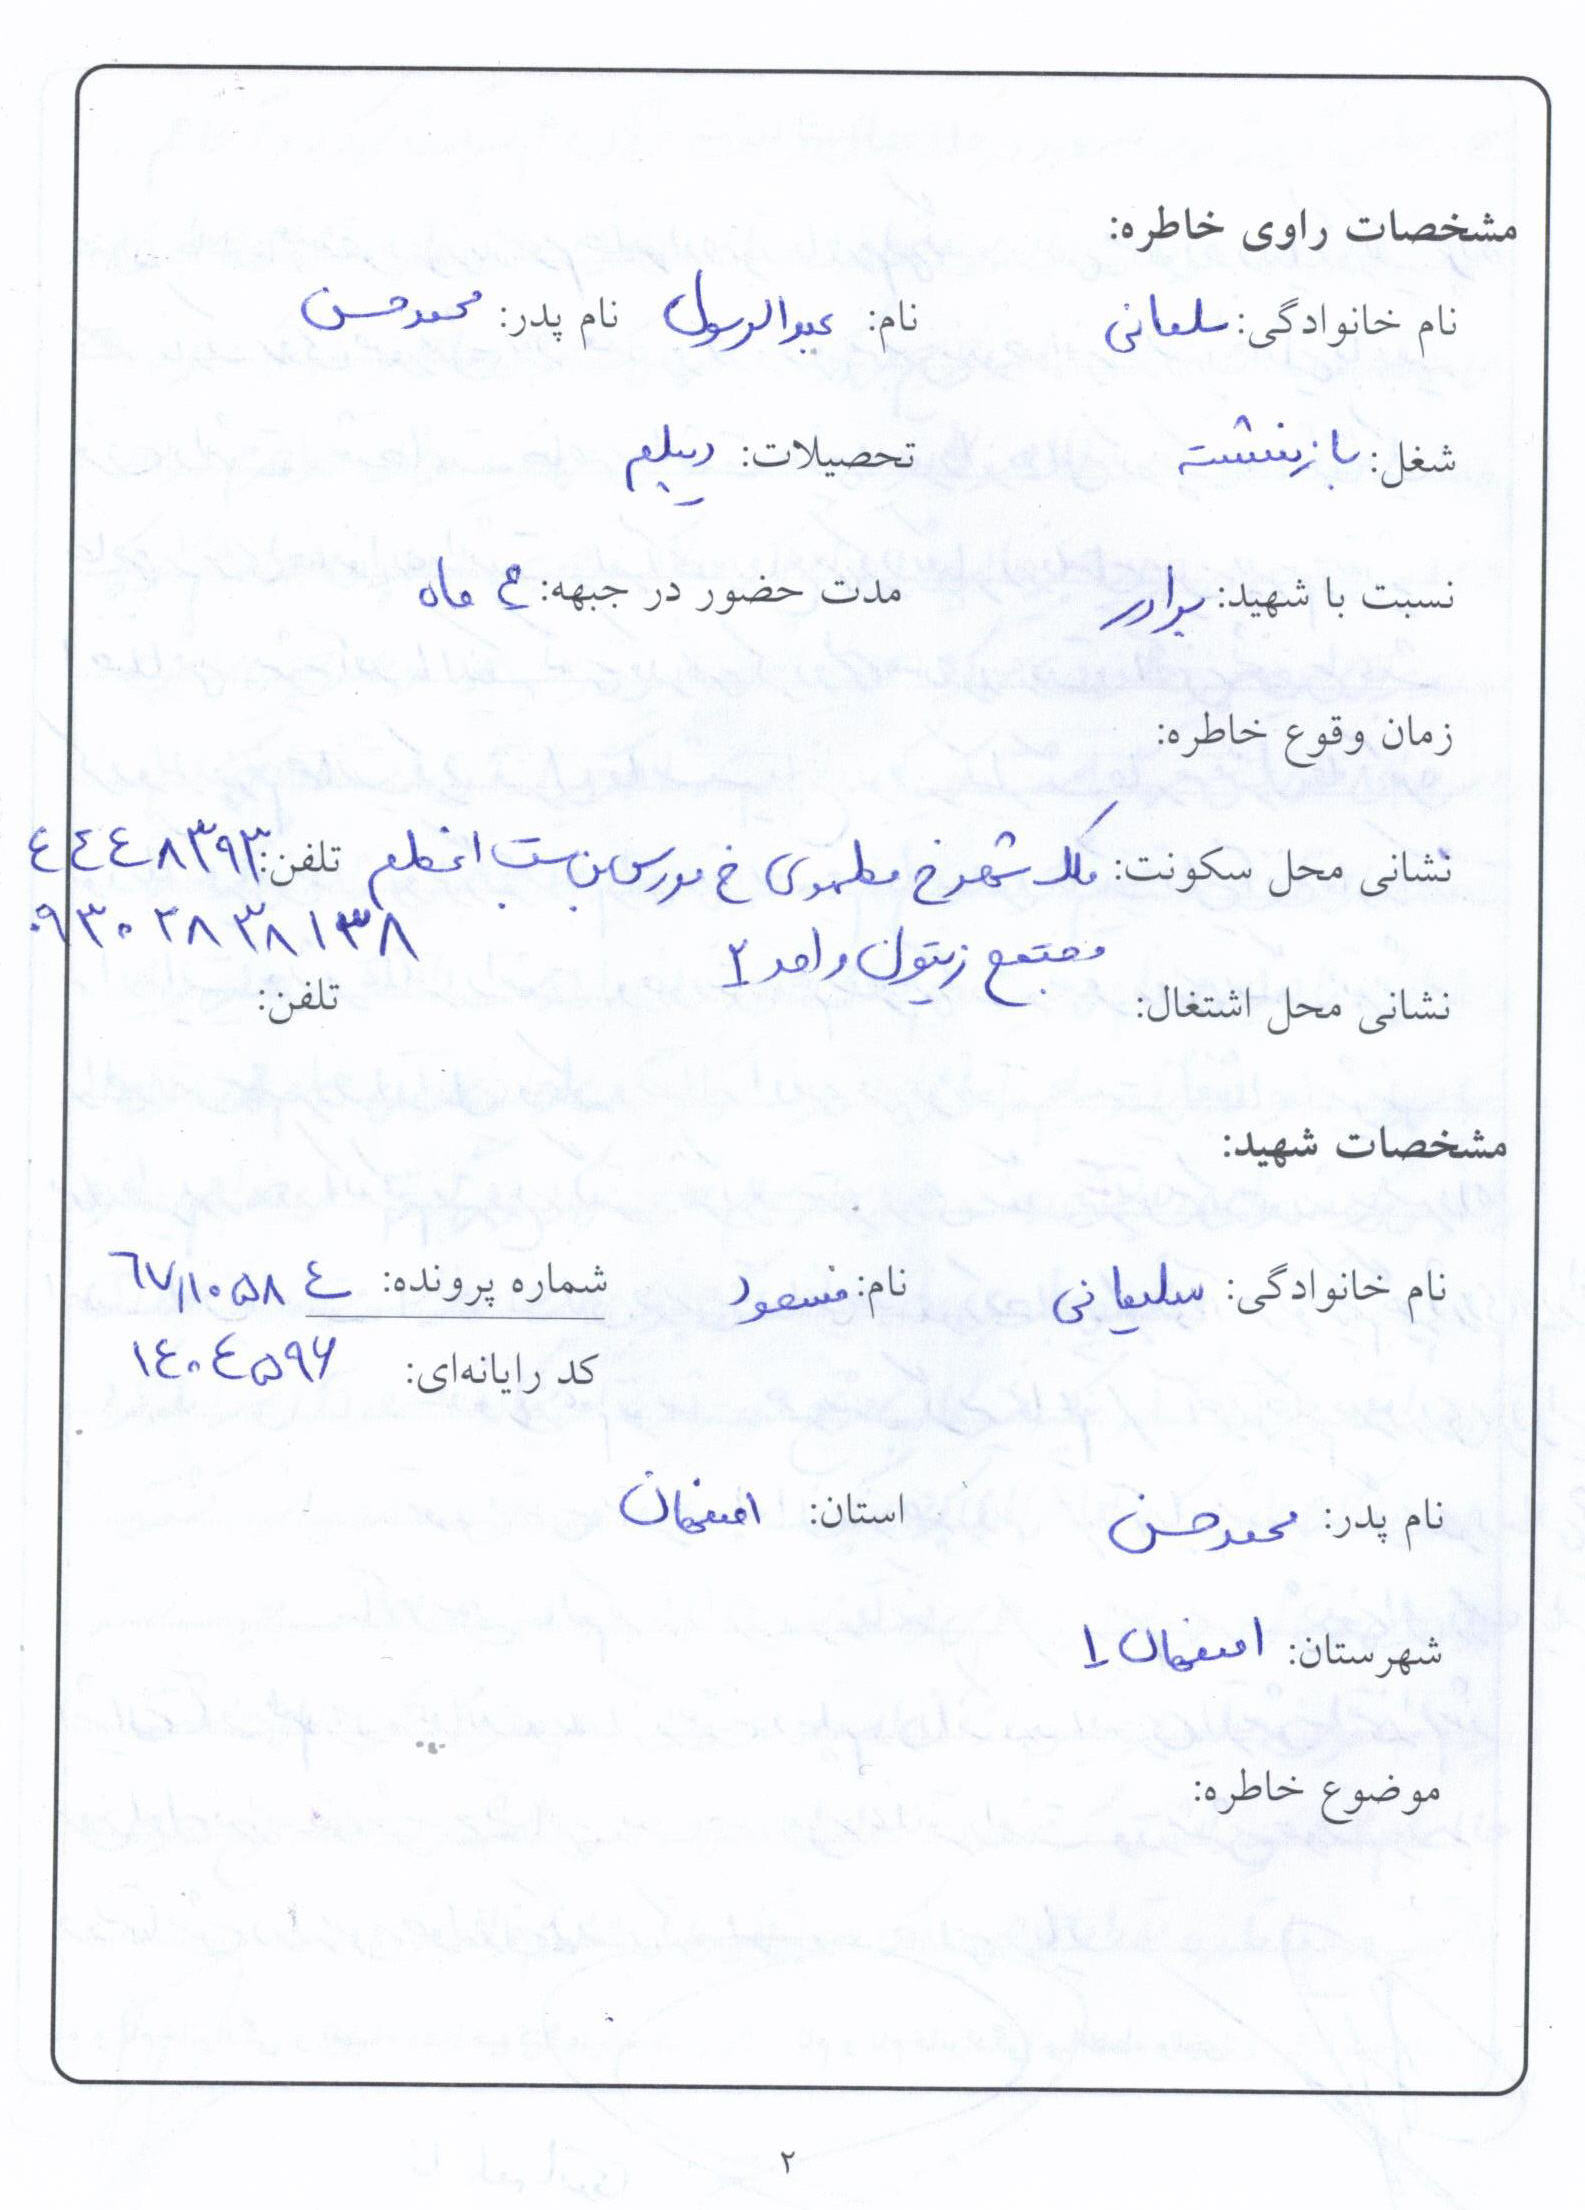 مشخصات راوی خاطره:
نام خانوادگی: سلیمانی نام: عبدالرسول نام پدر: محمدحسن
شغل: بازنشسته تحصیلات: دیپلم
نسبت با شهید: برادر مدت حضور در جبهه: ماه
زمان وقوع خاطره:
نشانی محل سکونت: ملک شهر خ مطهری خ مدرس بن بست تلفن: ٤٤٤٨٣٩٣
مجتمع زیتون واحد ۲ ۰۹۳۰۲۸۳۸۱۳۸
نشانی محل اشتغال: تلفن:
مشخصات شهید:
نام خانوادگی: سلیمانی نام: مسعود شماره پرونده:
کد رایانه‌ای: ١٤٠٤٥٩٦
نام پدر: محمدحسن استان: اصفهان
شهرستان: اصفهان ۱
موضوع خاطره:
۲